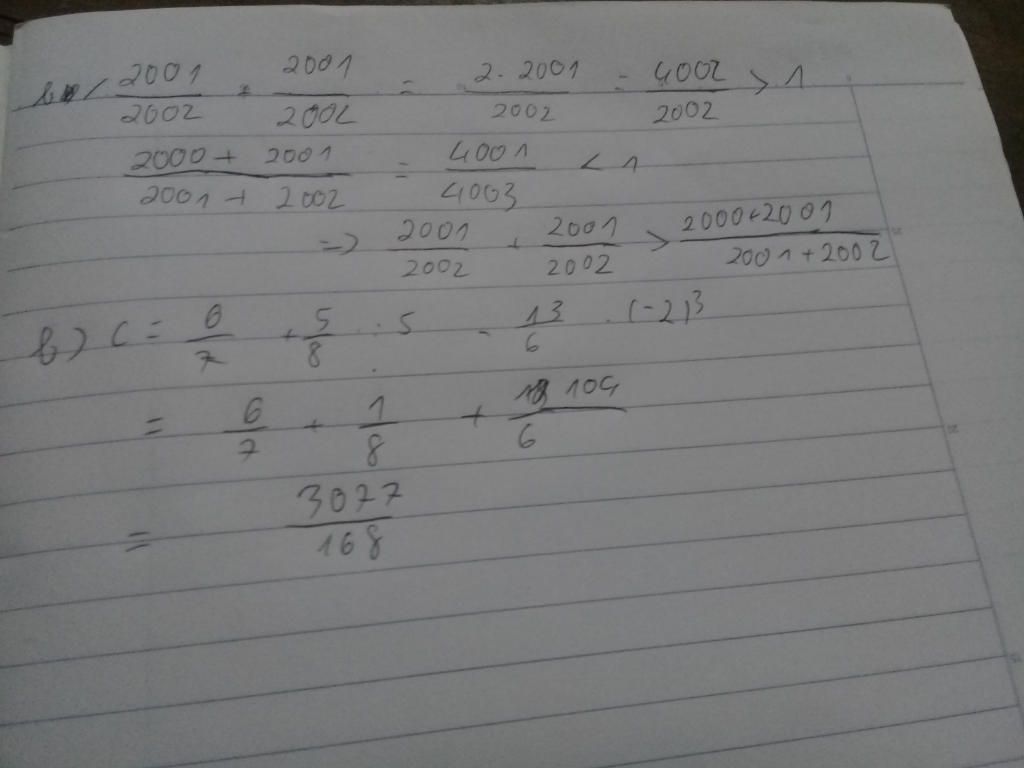 2001/2002 + 2001/2002 = 2.2001/2002 = 4002/2002 > 1
2000 + 2001/2001 + 2002 = 4001/4003 < 1
=> 2001/2002 + 2001/2002 > 2000+2001/2001+2002
b) C = 6/7 + 5/8 : 5 - 13/6 . (-2)³
= 6/7 + 1/8 + 104/6
= 3077/168